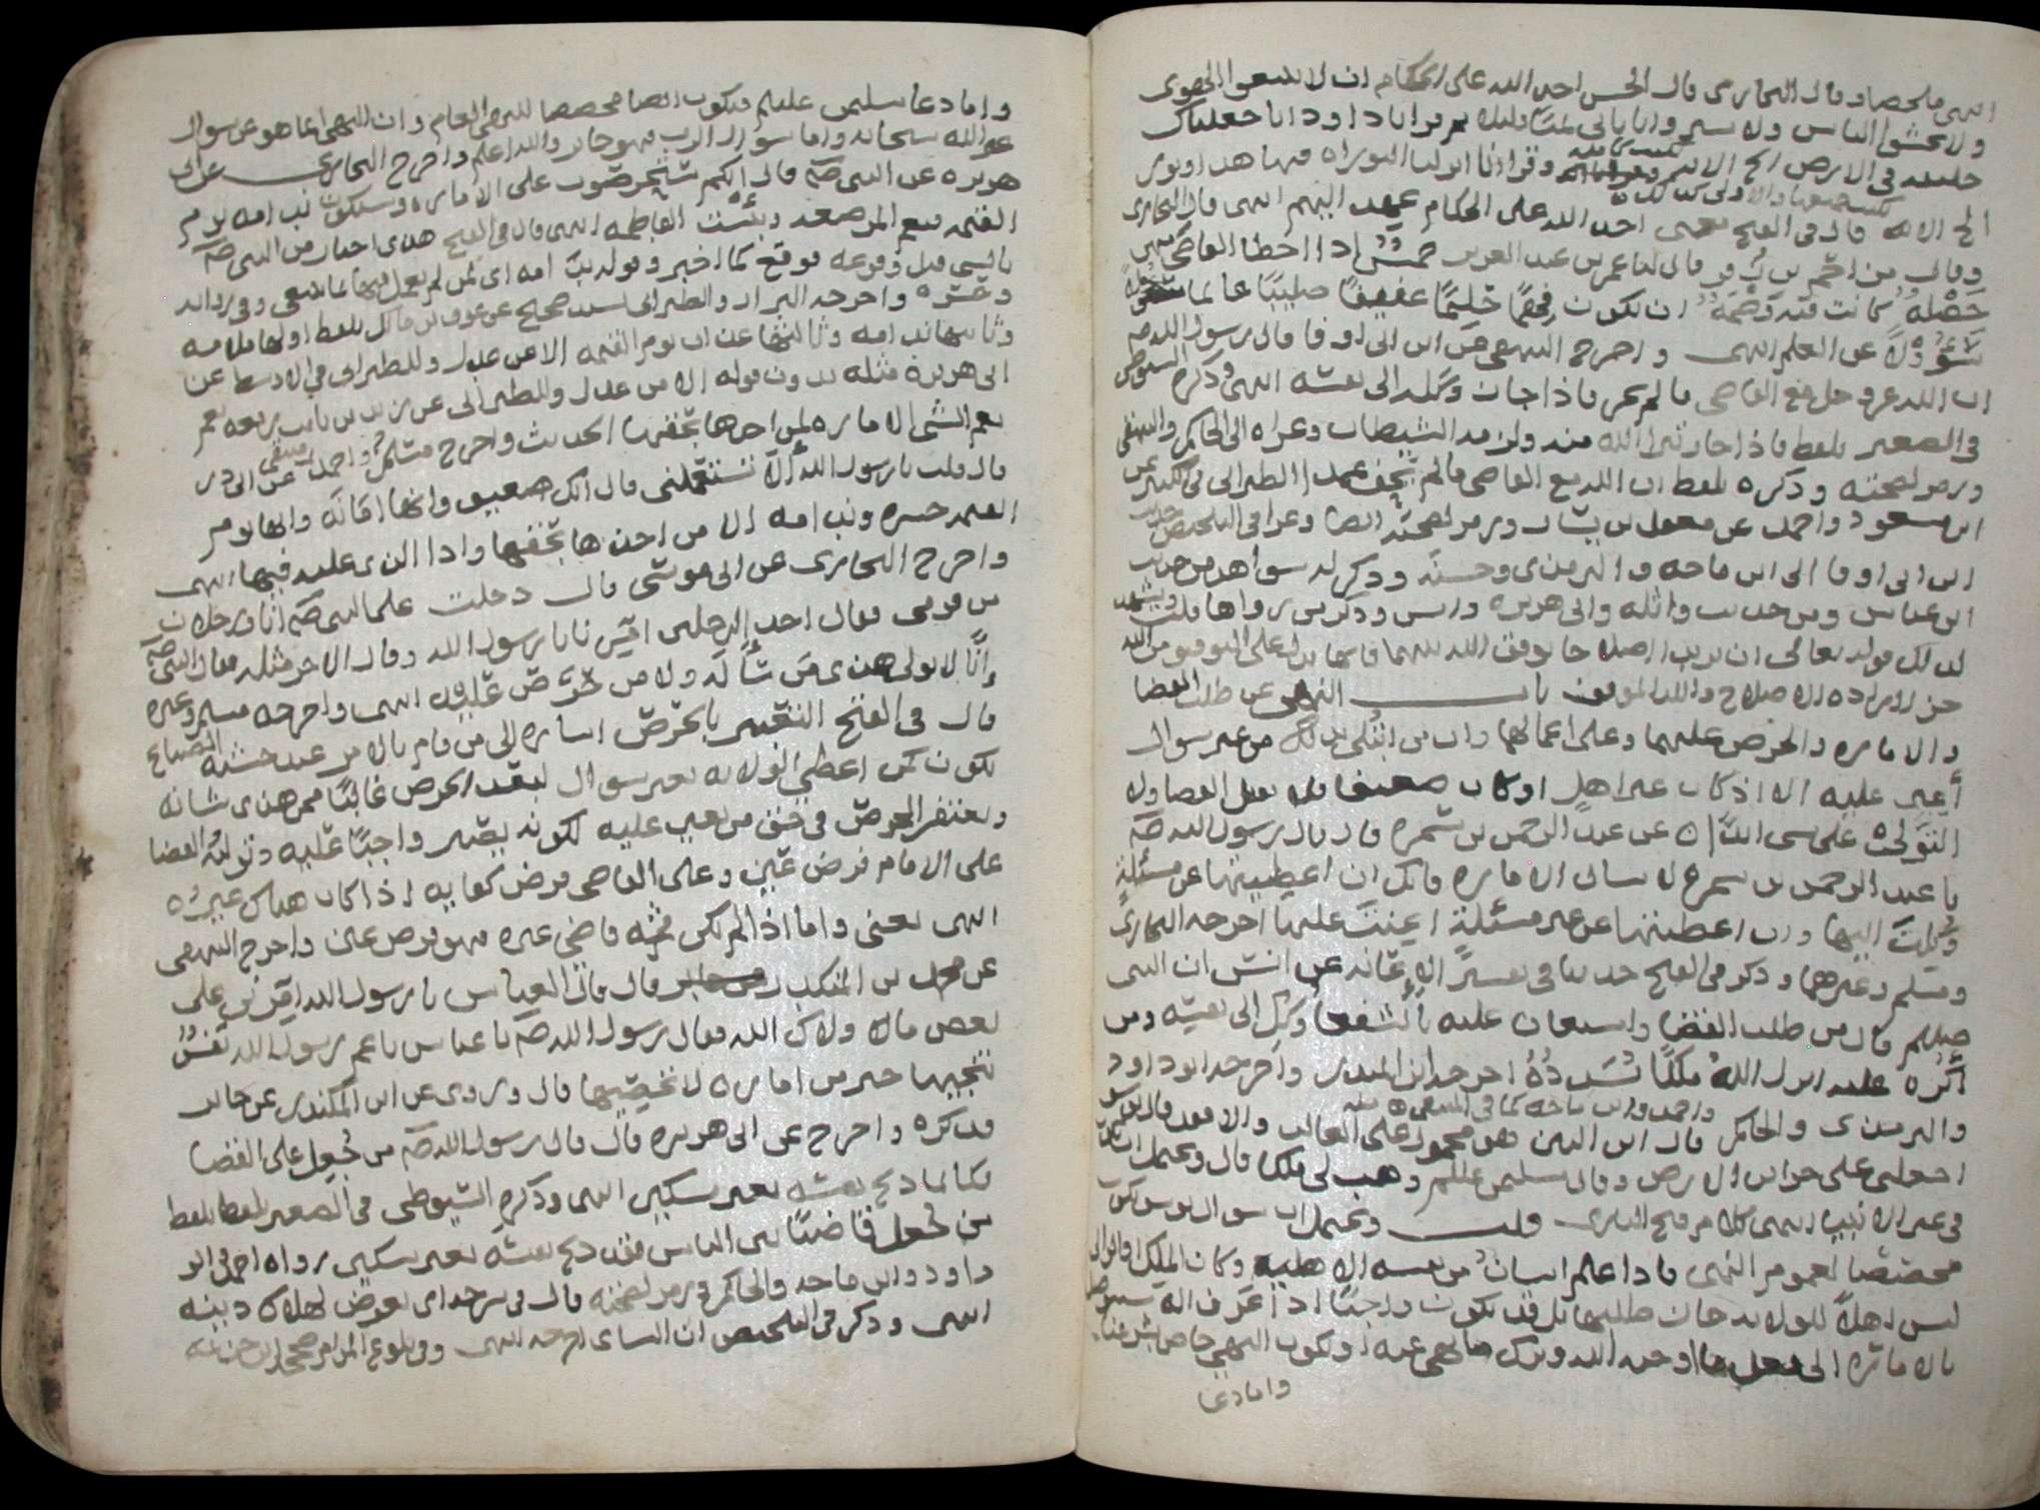 انتهى ملخصا وقال البخاري قال الحسن اخذ الله على الحكام ان لا يتبعوا الهوى
ولا يخشوا الناس ولا يشتروا باياتي ثمنا قليلا ثم قرا يا داود انا جعلناك
خليفة في الارض الخ الاية وقرا انا انزلنا التوراة فيها هدى ونور
الخ الاية قال في الفتح يعني اخذ الله على الحكام عهد اليهم انتهى قال البخاري
وقال مزاحم بن زفر قال لنا عمر بن عبد العزيز خمس اذا اخطا القاضي منهن
خصلة كانت فيه وصمة ان يكون فهما حليما عفيفا صليبا عالما
سؤولا عن العلم انتهى واخرج البيهقي عن ابن ابي اوفا قال رسول الله صلم
ان الله عز وجل مع القاضي ما لم يجر فاذا جار وكله الى نفسه انتهى وذكره السيوطي
في الصغير بلفظ فاذا جار تبرا الله منه ولزمه الشيطان وعزاه الى الحاكم والبيهقي
ورمز لصحته وذكره بلفظ ان الله مع القاضي ما لم يحف عمدا الطبراني في الكبير عن
ابن مسعود واحمد عن معقل بن يسار ورمز لصحته ايضا وعزا في التلخيص حديث
ابن ابي اوفا الى ابن ماجه والترمذي وحسنه وذكر له شواهد من حديث
ابن عباس ومن حديث واثلة وابي هريرة وانس وذكر من رواها قلت ويشهد
لذلك قوله تعالى ان يريدا اصلاحا يوفق الله بينهما فانها تدل على التوفيق من الله
حين الارادة الاصلاح والله الموفق باب النهي عن طلب القضا
والامارة والحرص عليهما وعلى اعمالها وان من ابتلي بذلك من غير سوال
أعين عليه الا اذ كان غير اهل او كان ضعيفا فلا يقبل القضا ولا
التولي على شي الا عن عبد الرحمن بن سمرة قال قال رسول الله صلم
يا عبد الرحمن بن سمرة لا تسال الامارة فانك ان اعطيتها عن مسئلة
وكلت اليها وان اعطيتها عن غير مسئلة اعنت عليها اخرجه البخاري
ومسلم وغيرهما وذكر في الفتح حديثا في تفسير الاعانه عن انس ان النبي
صلم قال من طلب القضا واستعان عليه بالشفعا وكل الى نفسه ومن
أكره عليه انزل الله ملكا يسدده اخرجه ابن المنذر واخرجه ابو داود
والترمذي والحاكم واحمد وابن ماجه كما في المنتقى قال ابن التين هو محمول على الغالب والا فقد قال يوسف
اجعلني على خزاين الارض وقال سليمن عليلم وهب لي ملكا قال ويحتمل ان يكون
في غير الانبيا انتهى كلام فتح الباري قلت ويحتمل ان سوال يوسف يكون
مخصصا لعموم النهي فاذا علم انسان من نفسه الاهلية وكان الملك او الوالي
ليس اهلا للولاية جاز طلبها بل قد يكون واجبا اذا عرف انه يتوصل
بالامارة الى فعل ما اوجبه الله وترك ما نهى عنه او يكون النهي خاص بشرعنا
واما دعا
واما دعا سليمن عليلم فيكون ايضا مخصصا للنهي العام وان النهي انما هو عن سوال
غير الله سبحانه واما سوال الرب فهو جايز والله اعلم واخرج البخاري عن ابي
هريرة عن النبي صلم قال انكم ستحرصون على الامارة وستكون ندامة يوم
القيمة فنعم المرضعة وبئست الفاطمة انتهى قال في الفتح هذا اخبار من النبي صلم
بالشي قبل وقوعه فوقع كما اخبر وقوله ندامة اي لمن لم يعمل فيها بما ينبغي وفي رواية
وحسرة واخرجه البزار والطبراني بسند صحيح عن عوف بن مالك بلفظ اولها ملامة
وثانيها ندامة وثالثها عذاب يوم القيمة الا من عدل وللطبراني في الاوسط عن
ابي هريرة مثله بدون قوله الا من عدل وللطبراني عن زيد بن ثابت يرفعه نعم
نعم الشي الامارة لمن اخذها بحقها الحديث واخرج مسلم واحمد عن ابي ذر
قال قلت يا رسول الله ألا تستعملني قال انك ضعيف وانها امانة وانها يوم
القيمة حسرة وندامة الا من اخذها بحقها وادا الذي عليه فيها انتهى
واخرج البخاري عن ابي موسى قال دخلت على النبي صلم انا ورجلان
من قومي فقال احد الرجلين امرنا يا رسول الله وقال الاخر مثله فقال النبي صلم
إنا لا نولي هذى من سأله ولا من حرص عليه انتهى واخرجه مسلم وغيره
قال في الفتح التعبير بالحرص اشارة الى من قام بالامر عند خشية الضياع
يكون كمن اعطي الولاية بغير سوال لفقد الحرص غالبا ممن هذى شانه
ويغتفر الحرص في حق من تعين عليه لكونه يصير واجبا عليه وتولية القضا
على الامام فرض عين وعلى القاضي فرض كفاية اذا كان هناك غيره
انتهى يعني واما اذا لم يكن ثمة قاضي غيره فهو فرض عين واخرج البيهقي
عن محمد بن المنكدر قال قال العباس يا رسول الله امرني على
بعض ما ولاك الله فقال رسول الله صلم يا عباس يا عم رسول الله نفس
تنجيها خير من امارة لا تحصيها قال وروي عن ابن المنكدر عن جابر
فذكره واخرج عن ابي هريرة قال قال رسول الله صلم من جعل على القضا
فكانما ذبح نفسه بغير سكين انتهى وذكره السيوطي في الصغير بلفظ
من جعل قاضيا بين الناس فقد ذبح نفسه بغير سكين رواه احمد وابو
داود وابن ماجه والحاكم ورمز لصحته قال في شرحه اي تعرض لهلاك دينه
انتهى وذكر في التلخيص ان النساي اخرجه انتهى وفي بلوغ المرام صححه ابن خزيمة